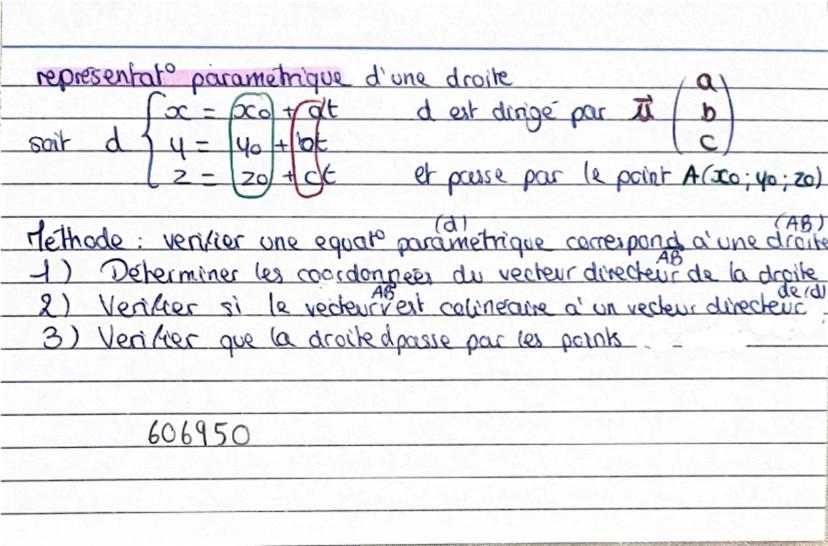 représentat° paramétrique d'une droite
soit d { x = x0 + at d est dirigé par u (a
y = y0 + bt b
z = z0 + ct c)
et passe par le point A(x0; y0; z0)
Méthode : verifier une equat° paramétrique (d) correspond à une droite (AB)
1) Déterminer les coordonnées du vecteur directeur AB de la droite
2) Verifier si le vecteur AB est colinéaire à un vecteur directeur de (d)
3) Verifier que la droite d passe par les points
606950